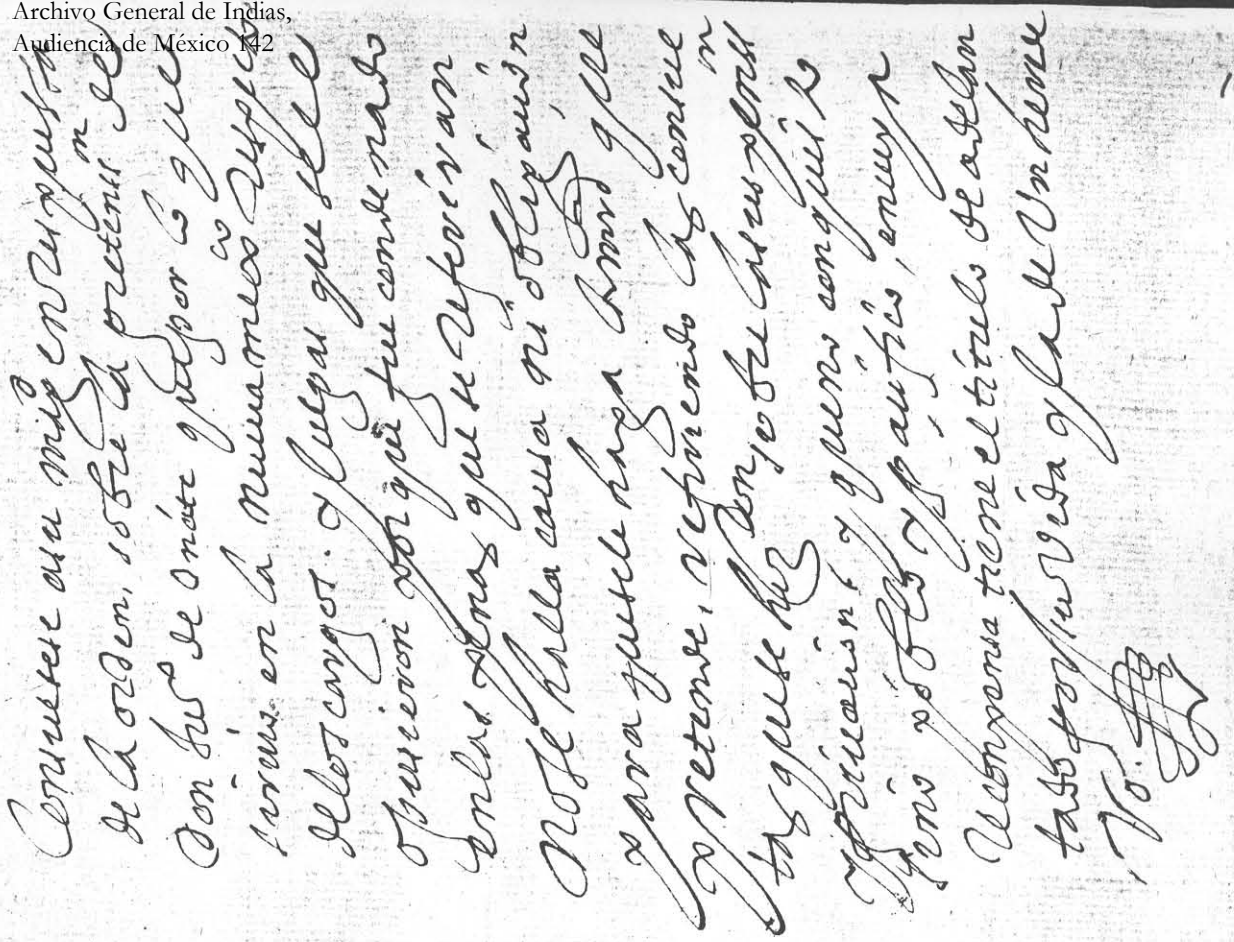 Archivo General de Indias,
Audiencia de México 142
Consultese a su mag en respuesta
de la orden, sobre la pretenss.on de
Don Ju.o de oñate que por lo que
siruio en la nueua mex.co Respecto
de los cargos. y culpas que se le
opusieron por que fue condenado
en las penas que se Refieren an
no se halla causa ni obligacion
para que se le haga la md que
pretende, Refiriendo las consul
tas que se han sobre las suspenss.on
y quens conquisto
y pacifico, en cuya
Recompensa tiene el titulo de adelan
tado por su vida y la de Un hered.o